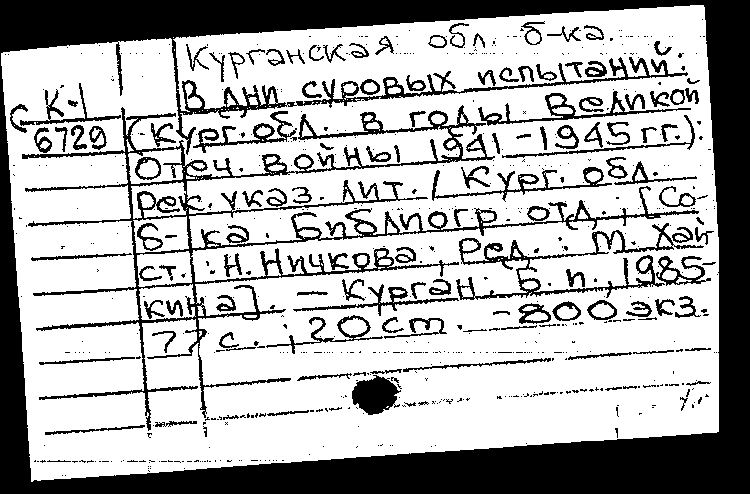 Курганская обл. б-ка.
В дни суровых испытаний:
с К-1
6729
(Кург. обл. в годы Великой
Отеч. войны 1941-1945 гг.):
Рек. указ. лит. / Кург. обл.
б-ка. Библиогр. отд.; [Со-
ст.: Н. Ничкова; Ред.: М. Хай-
кина]. — Курган: Б. и., 1985
77 с.; 20 см. - 800 экз.